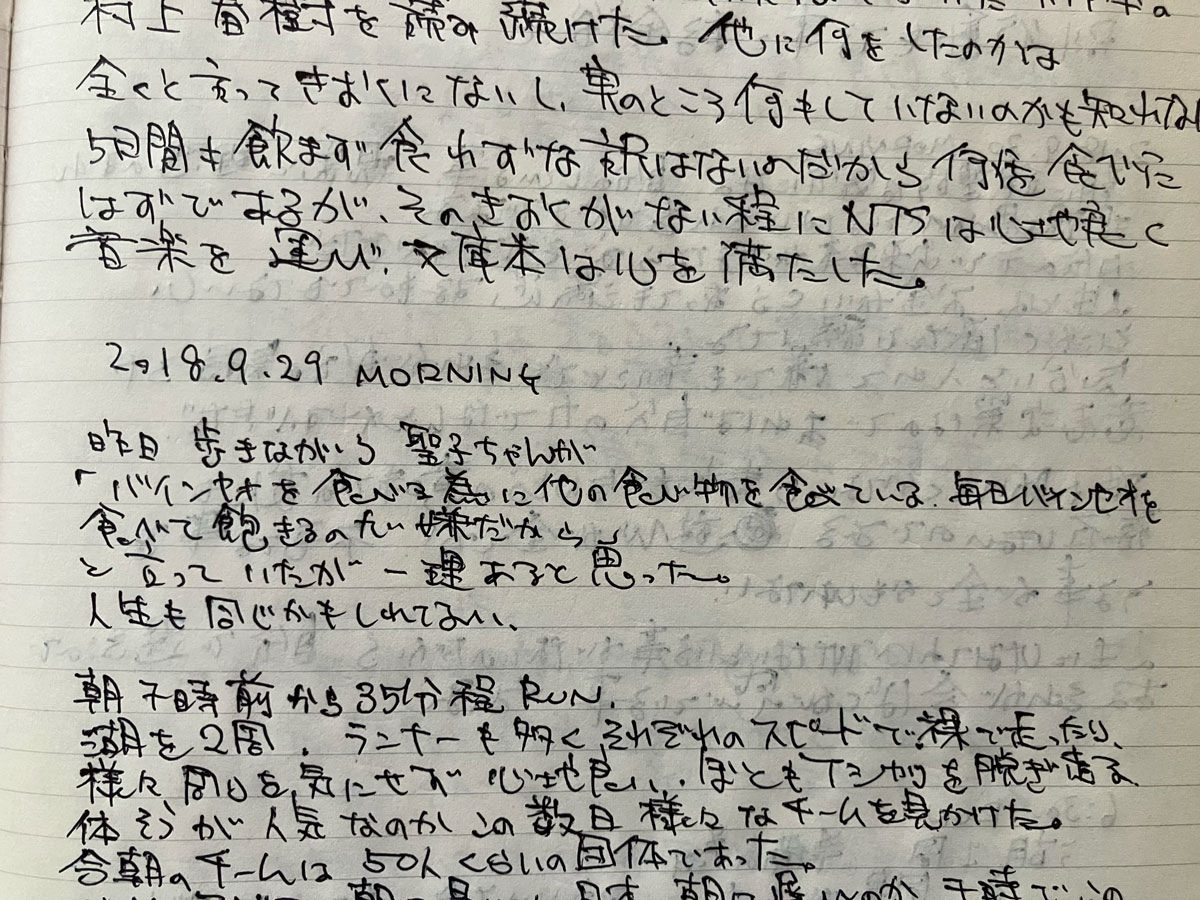 村上春樹を読み続けた。他に何をしたのかは
全くと言ってきおくにないし、実のところ何もしていないのかも知れない
5日間も飲まず食わずな訳はないのだから何かを食べた
はずであるが、そのきおくがない程にNTSは心地良く
音楽を運び、文庫本は心を満たした。
2018.9.29 MORNING
昨日 歩きながら 聖子ちゃんが
「バインセオを食べる為に他の食べ物を食べている。毎日バインセオを
食べて飽きるのが嫌だから
と言っていたが一理あると思った。
人生も同じかもしれない、
朝7時前から35分程RUN.
湖を2周。ランナーも多くそれぞれのスピードで、裸で走ったり、
様々周りを気にせず心地良い。ぼくもTシャツを脱ぎ走る
体そうが人気なのかこの数日様々なチームを見かけた。
今朝のチームは50人くらいの団体であった。